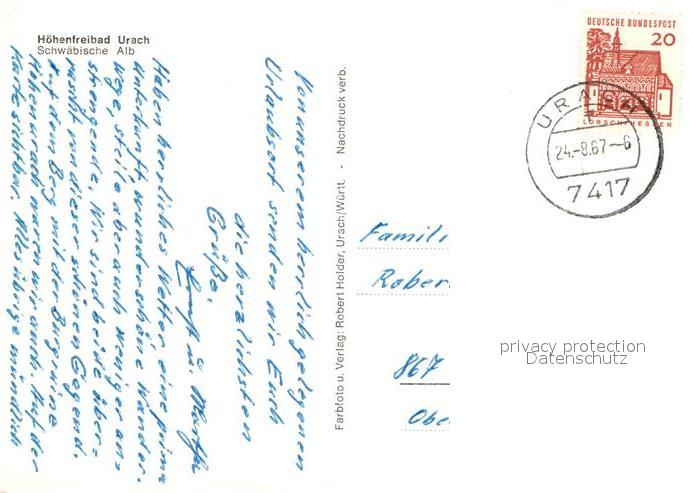 Höhenfreibad Urach
Schwäbische Alb
Von unserem herrlich gelegenen
Urlaubsort senden wir Euch
die herzlichsten
Grüße.
Haben herrliches Wetter eine prima
Unterkunft, wunderschöne Wander-
wege, steile aber auch weniger an-
strengende. Wir sind beide über-
rascht von dieser schönen Gegend.
Auf dem Berg mit der Burgruine
Hohenurach waren wir auch. Auf der
Karte sichtbar. Alles übrige mündlich
Farbfoto u. Verlag: Robert Holder, Urach/Württ. - Nachdruck verb.
DEUTSCHE BUNDESPOST
20
LORSCH/HESSEN
URACH
24.-8.67-6
7417
Famili
Rober
867
Obe
privacy protection
Datenschutz